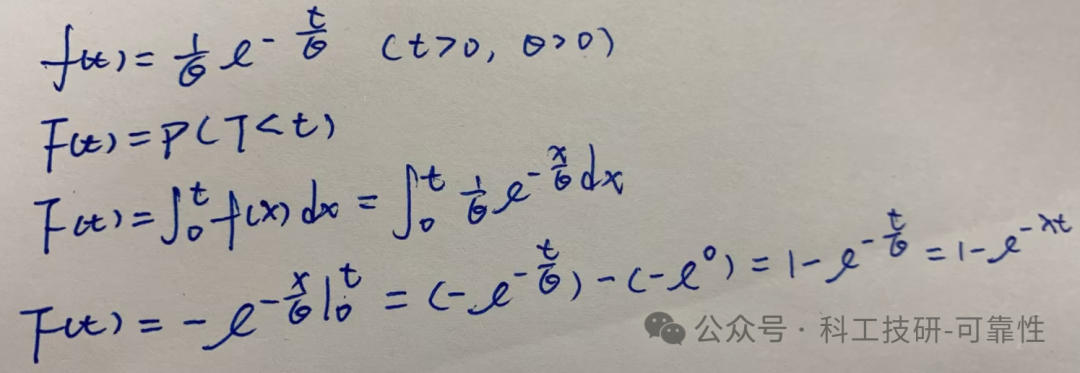 f(t) = 1/θ e^(-t/θ) (t>0, θ>0)
F(t) = P(T<t)
F(t) = ∫₀ᵗ f(x) dx = ∫₀ᵗ 1/θ e^(-x/θ) dx
F(t) = -e^(-x/θ)|₀ᵗ = (-e^(-t/θ)) - (-e⁰) = 1 - e^(-t/θ) = 1 - e^(-λt)
公众号 · 科工技研-可靠性